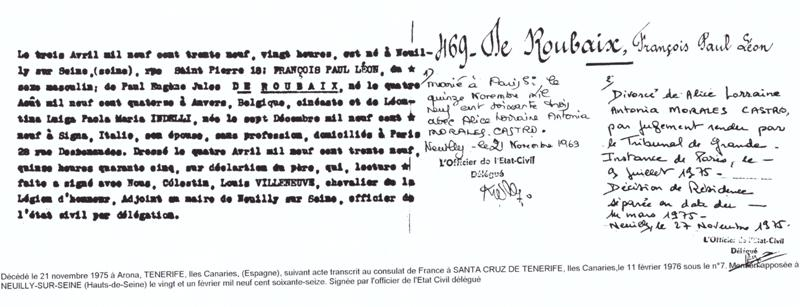 Le trois Avril mil neuf cent trente neuf, vingt heures, est né à Neuil-
ly sur Seine,(seine), rue Saint Pierre 18: FRANÇOIS PAUL LÉON, du *
sexe masculin; de Paul Eugène Jules D E R O U B A I X, né le quatre
Août mil neuf cent quatorze à Anvers, Belgique, cinéaste et de Léon-
tine Luiga Paola Maria INDELLI, née le sept Décembre mil neuf cent *
neuf à Signa, Italie, son épouse, sans profession, domiciliés à Paris
28 rue Desbordes. Dressé le quatre Avril mil neuf cent trente neuf,
quinze heures quarante cinq, sur déclartion du père, qui, lecture *
faite a signé avec Nous, Célestin, Louis VILLENEUVE, chevalier de la
Légion d'honneur, Adjoint au maire de Neuilly sur Seine, officier de
l'état civil par délégation.
469 - De Roubaix, François Paul Léon
1)
marié à Paris 8: le
quinze Novembre mil
neuf cent soixante trois
avec Alice Lorraine Antonia
MORALES-CASTRO.
Neuilly - le 21 Novembre 1963
L'Officier de l'Etat-Civil
Délégué
2)
Divorcé de Alice Lorraine
Antonia MORALES CASTRO,
par jugement rendu par
le Tribunal de Grande-
Instance de Paris, le -
9 juillet 1975 -
Décision de Résidence
séparée en date du -
1er mars 1975 -
Neuilly, le 27 Novembre 1975.
L'Officier de l'Etat-Civil
Délégué
Décédé le 21 novembre 1975 à Arona, TENERIFE, Iles Canaries, (Espagne), suivant acte transcrit au consulat de France à SANTA CRUZ DE TENERIFE, Iles Canaries,le 11 février 1976 sous le n°7. Mention apposée à
NEUILLY-SUR-SEINE (Hauts-de-Seine) le vingt et un février mil neuf cent soixante-seize. Signée par l'officier de l'Etat Civil délégué